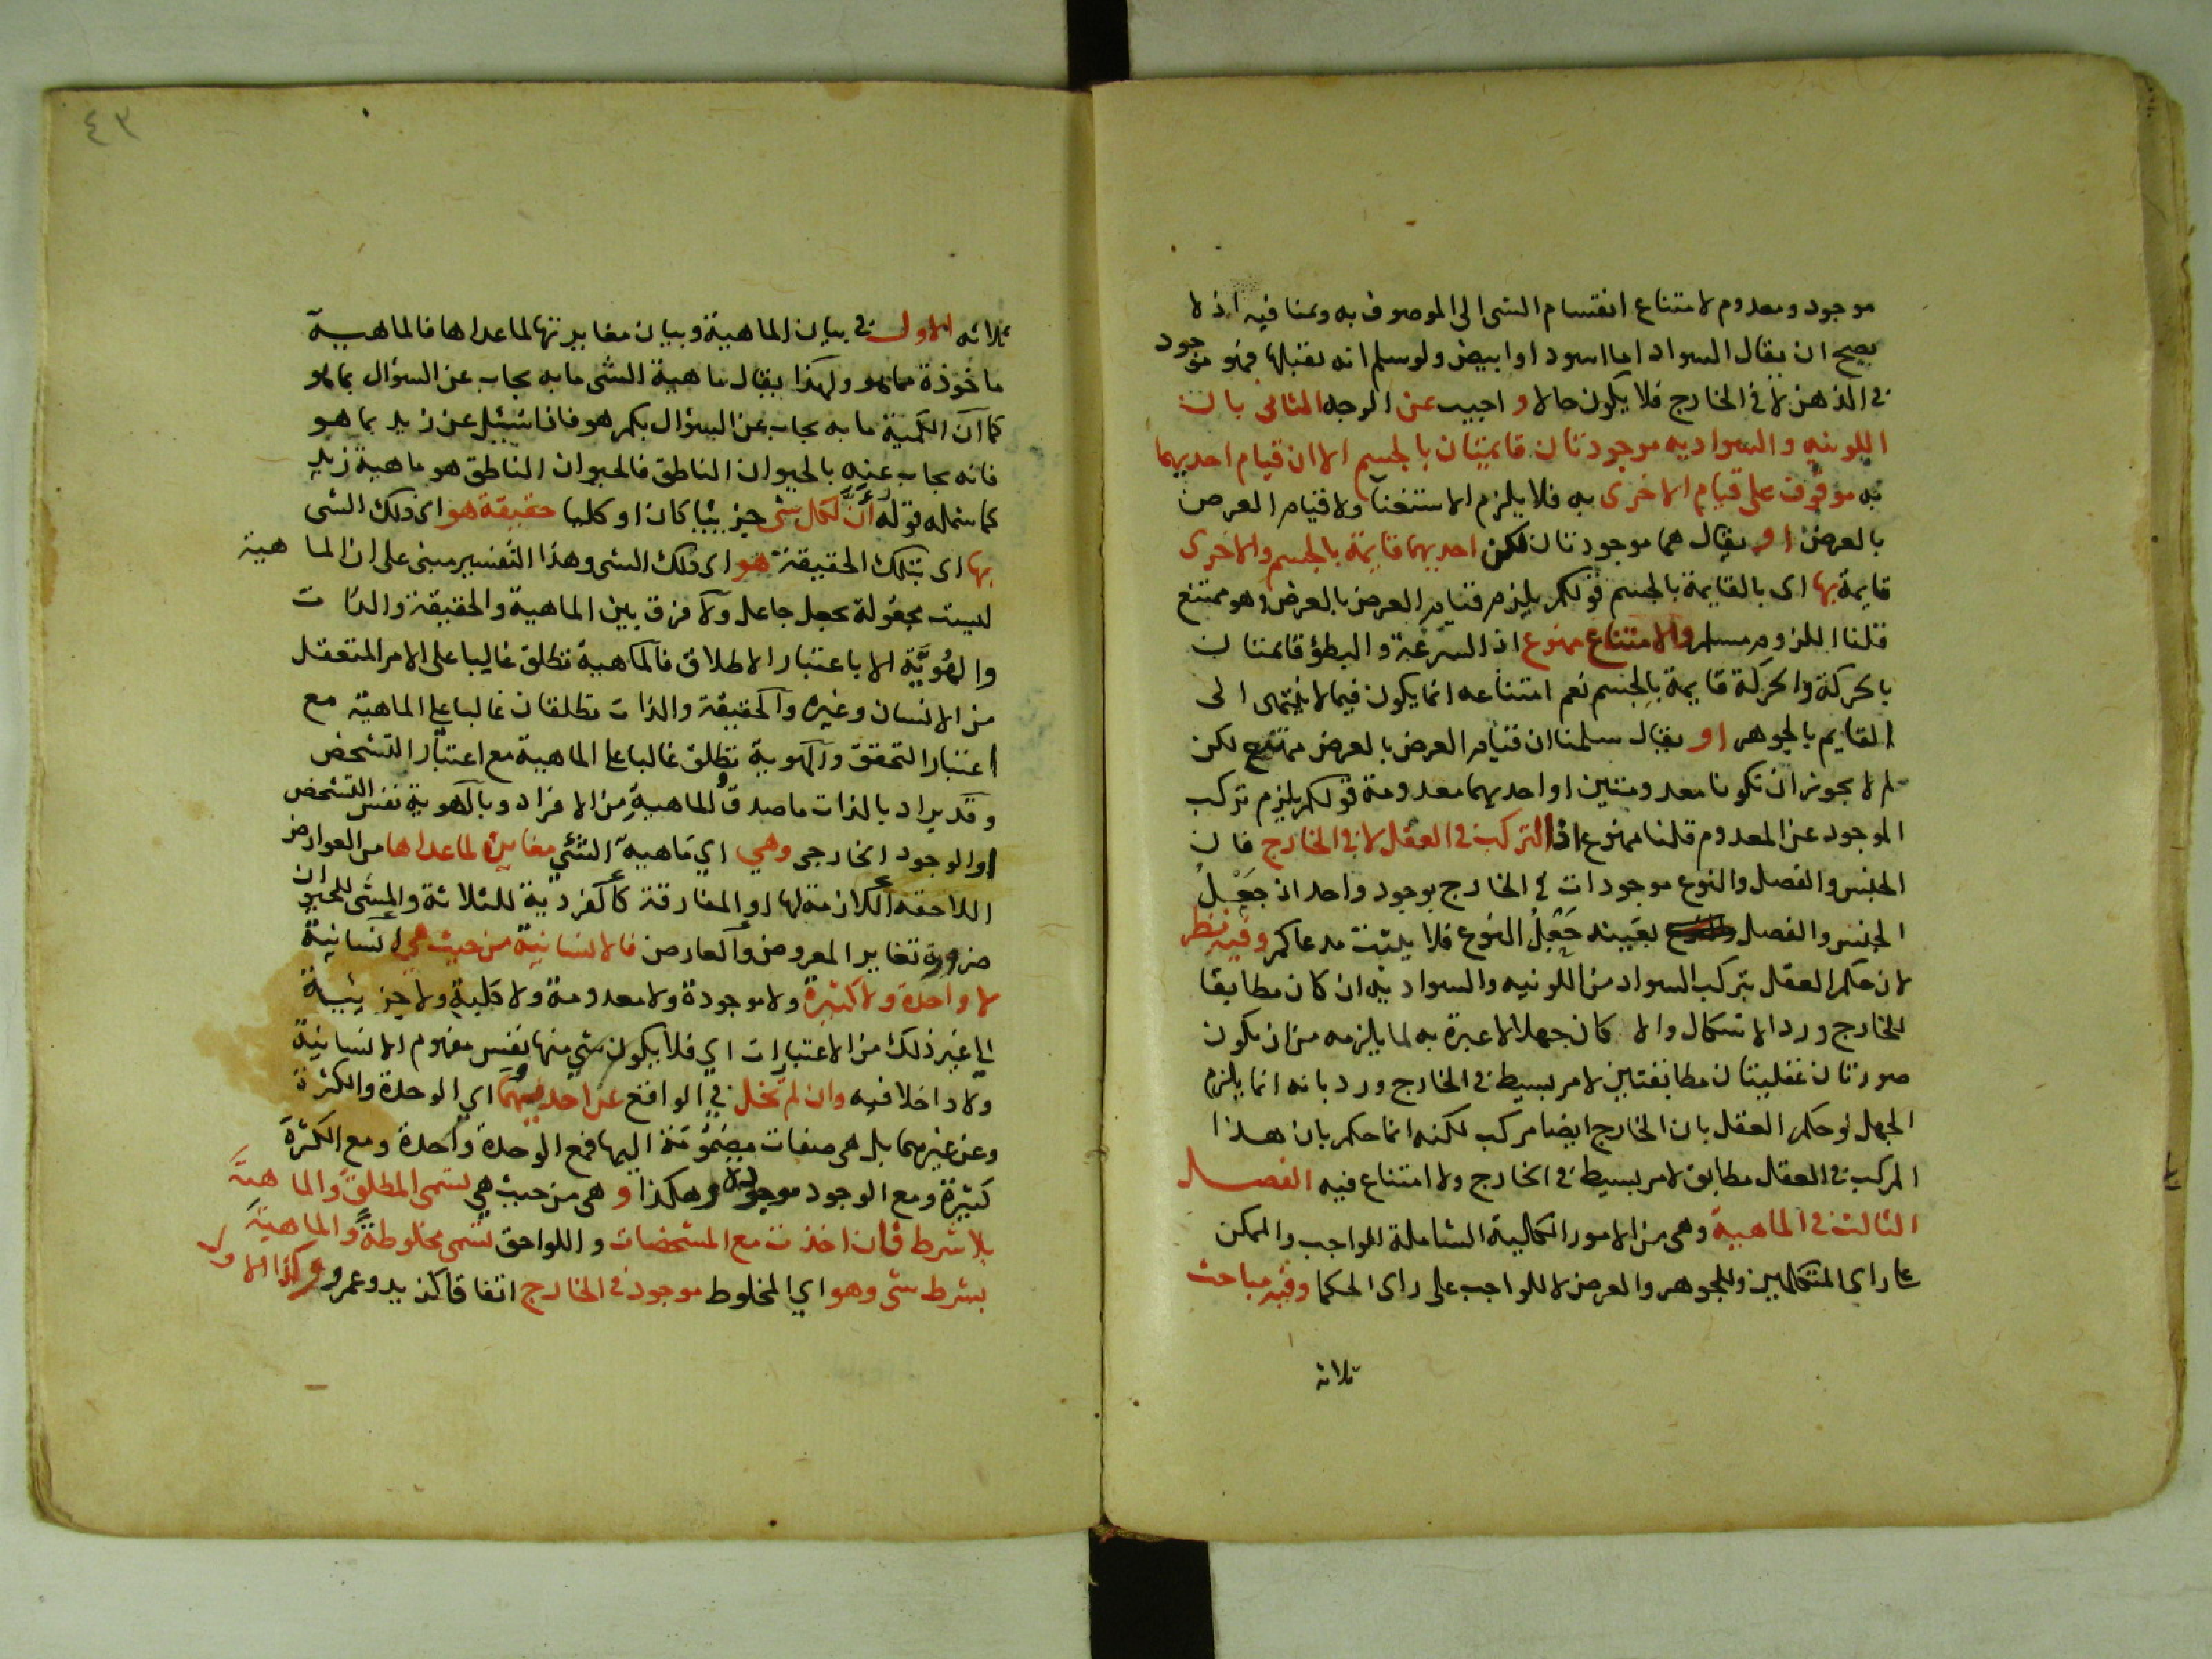 موجود ومعدوم لامتناع انقسام الشى الى الموصوف به وبمنافيه اذ لا
يصح ان يقال السواد اما اسود او ابيض ولو سلم انه يقبلها فهو موجود
فى الذهن لا فى الخارج فلا يكون حالا واجيب عن الوجه الثانى بان
اللونيه والسواديه موجودتان قائمتان بالجسم الا ان قيام احديهما
به موقوف على قيام الاخرى به فلا يلزم الاستغنا ولا قيام العرض
بالعرض او يقال هما موجودتان لكن احديهما قايمة بالجسم والاخرى
قايمة بها اى بالقايمة بالجسم قولكم يلزم قيام العرض بالعرض وهو ممتنع
قلنا اللزوم مسلم والامتناع ممنوع اذ السرعة والبطؤ قائمتان
بالحركة والحركة قايمة بالجسم نعم امتناعه انما يكون فيما لا ينتهى الى
القايم بالجوهر او يقال سلمنا ان قيام العرض بالعرض ممتنع لكن
لم لا يجوز ان تكونا معدومتين او احديهما معدومة قولكم يلزم تركب
الموجود عن المعدوم قلنا ممنوع اذ التركب فى العقل لا فى الخارج فان
الجنس والفصل والنوع موجودات فى الخارج بوجود واحد اذ جَعْلُ
الجنس والفصل بعينه جَعْلُ النوع فلا يثبت مدعاكم وفيه نظر
لان حكم العقل بتركب السواد من اللونيه والسواديه ان كان مطابقا
للخارج ورد الاشكال والا كان جهلا لا عبرة به لما يلزمه من ان يكون
صورتان عقليتان مطابقتين لامر بسيط فى الخارج ورد بانه انما يلزم
الجهل لو حكم العقل بان الخارج ايضا مركب لكنه انما حكم بان هذا
المركب فى العقل مطابق لامر بسيط فى الخارج ولا امتناع فيه الفصل
الثالث فى الماهية وهى من الامور الكلية الشاملة للواجب والممكن
على راى المتكلمين وللجوهر والعرض لا للواجب على راى الحكما وفيه مباحث
ثلاثه
٤٣
ثلاثه الاول فى بيان الماهية وبيان مغايرتها لما عداها فالماهية
ماخوذة مما هو ولهذا يقال ماهية الشى ما به يجاب عن السؤال بما هو
كما ان الكمية ما به يجاب عن السؤال بكم هو فاذا سئل عن زيد بما هو
فانه يجاب عنه بالحيوان الناطق فالحيوان الناطق هو ماهية زيد
كما شمله قوله انَّ لكل شى جزئيا كان او كليا حقيقة هو اى ذلك الشى
بها اى بتلك الحقيقة هو اى ذلك الشى وهذا التفسير مبنى على ان الماهية
ليست مجعولة بجعل جاعل ولا فرق بين الماهية والحقيقة والذات
والهُويَّة الا باعتبار الاطلاق فالماهية تطلق غالبا على الامر المتعقل
من الانسان وغيره والحقيقة والذات تطلقان غالبا على الماهية مع
اعتبار التحقق والهوية تطلق غالبا على الماهية مع اعتبار التشخص
وقد يراد بالذات ما صدق الماهية من الافراد وبالهوية نفس التشخص
او الوجود الخارجى وهي اي ماهية الشئي مغايرة لما عداها من العوارض
اللاحقة اللازمة لها او المفارقة كالفردية للثلاثة والمشى للحيوان
ضرورة تغاير المعروض والعارض فالانسانية من حيث هي انسانية
لا واحدة ولا كثيرة ولا موجودة ولا معدومة ولا كلية ولا جزيئية
الي غير ذلك من الاعتبارات اي فلا يكون شي منها نفس مفهوم الانسانية
ولا داخلا فيه وان لم تخل في الواقع عن احديهما اي الوحدة والكثرة
وعن غيرهما بل هى صفات مضمومة اليها فمع الوحدة واحدة ومع الكثرة
كثيرة ومع الوجود موجودة وهكذا وهى من حيث هي تسمى المطلق والماهية
بلا شرط فان اخذت مع المشخصات واللواحق تسمى مخلوطة والماهية
بشرط شى وهو اي المخلوط موجود فى الخارج اتفاقا كزيد وعمرو وكذا الاول